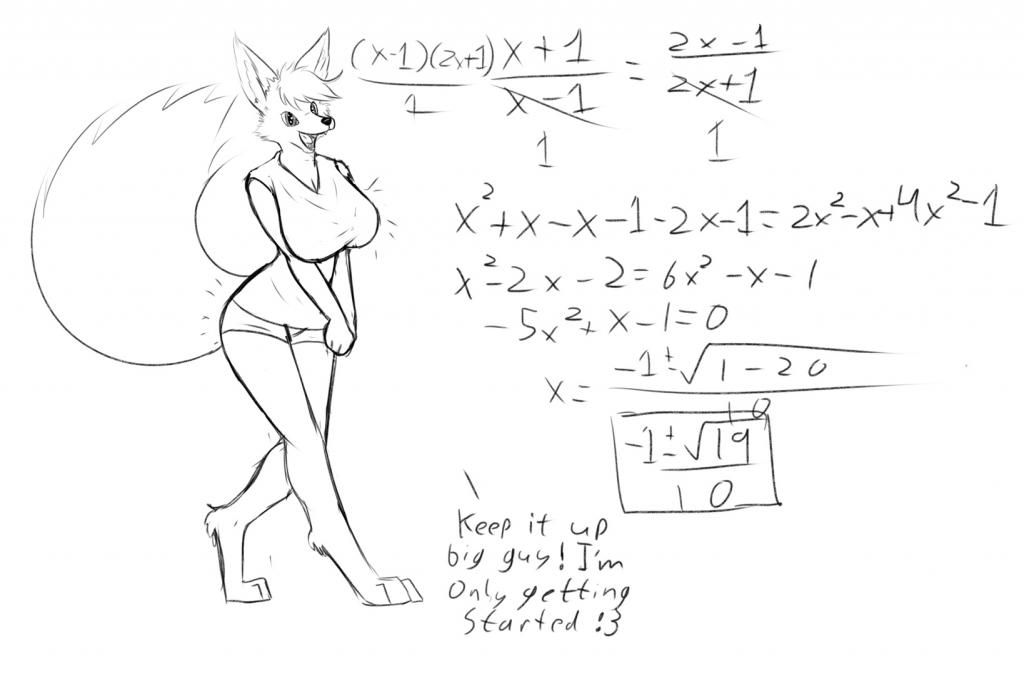 (x-1)(2x+1) x+1 = 2x-1
1 x-1 2x+1
1 1
x²+x-x-1-2x-1=2x²-x+4x²-1
x²-2x-2=6x²-x-1
-5x²+x-1=0
x= -1±√1-20
10
-1±√19
10
Keep it up
big guy! I'm
Only getting
Started !3